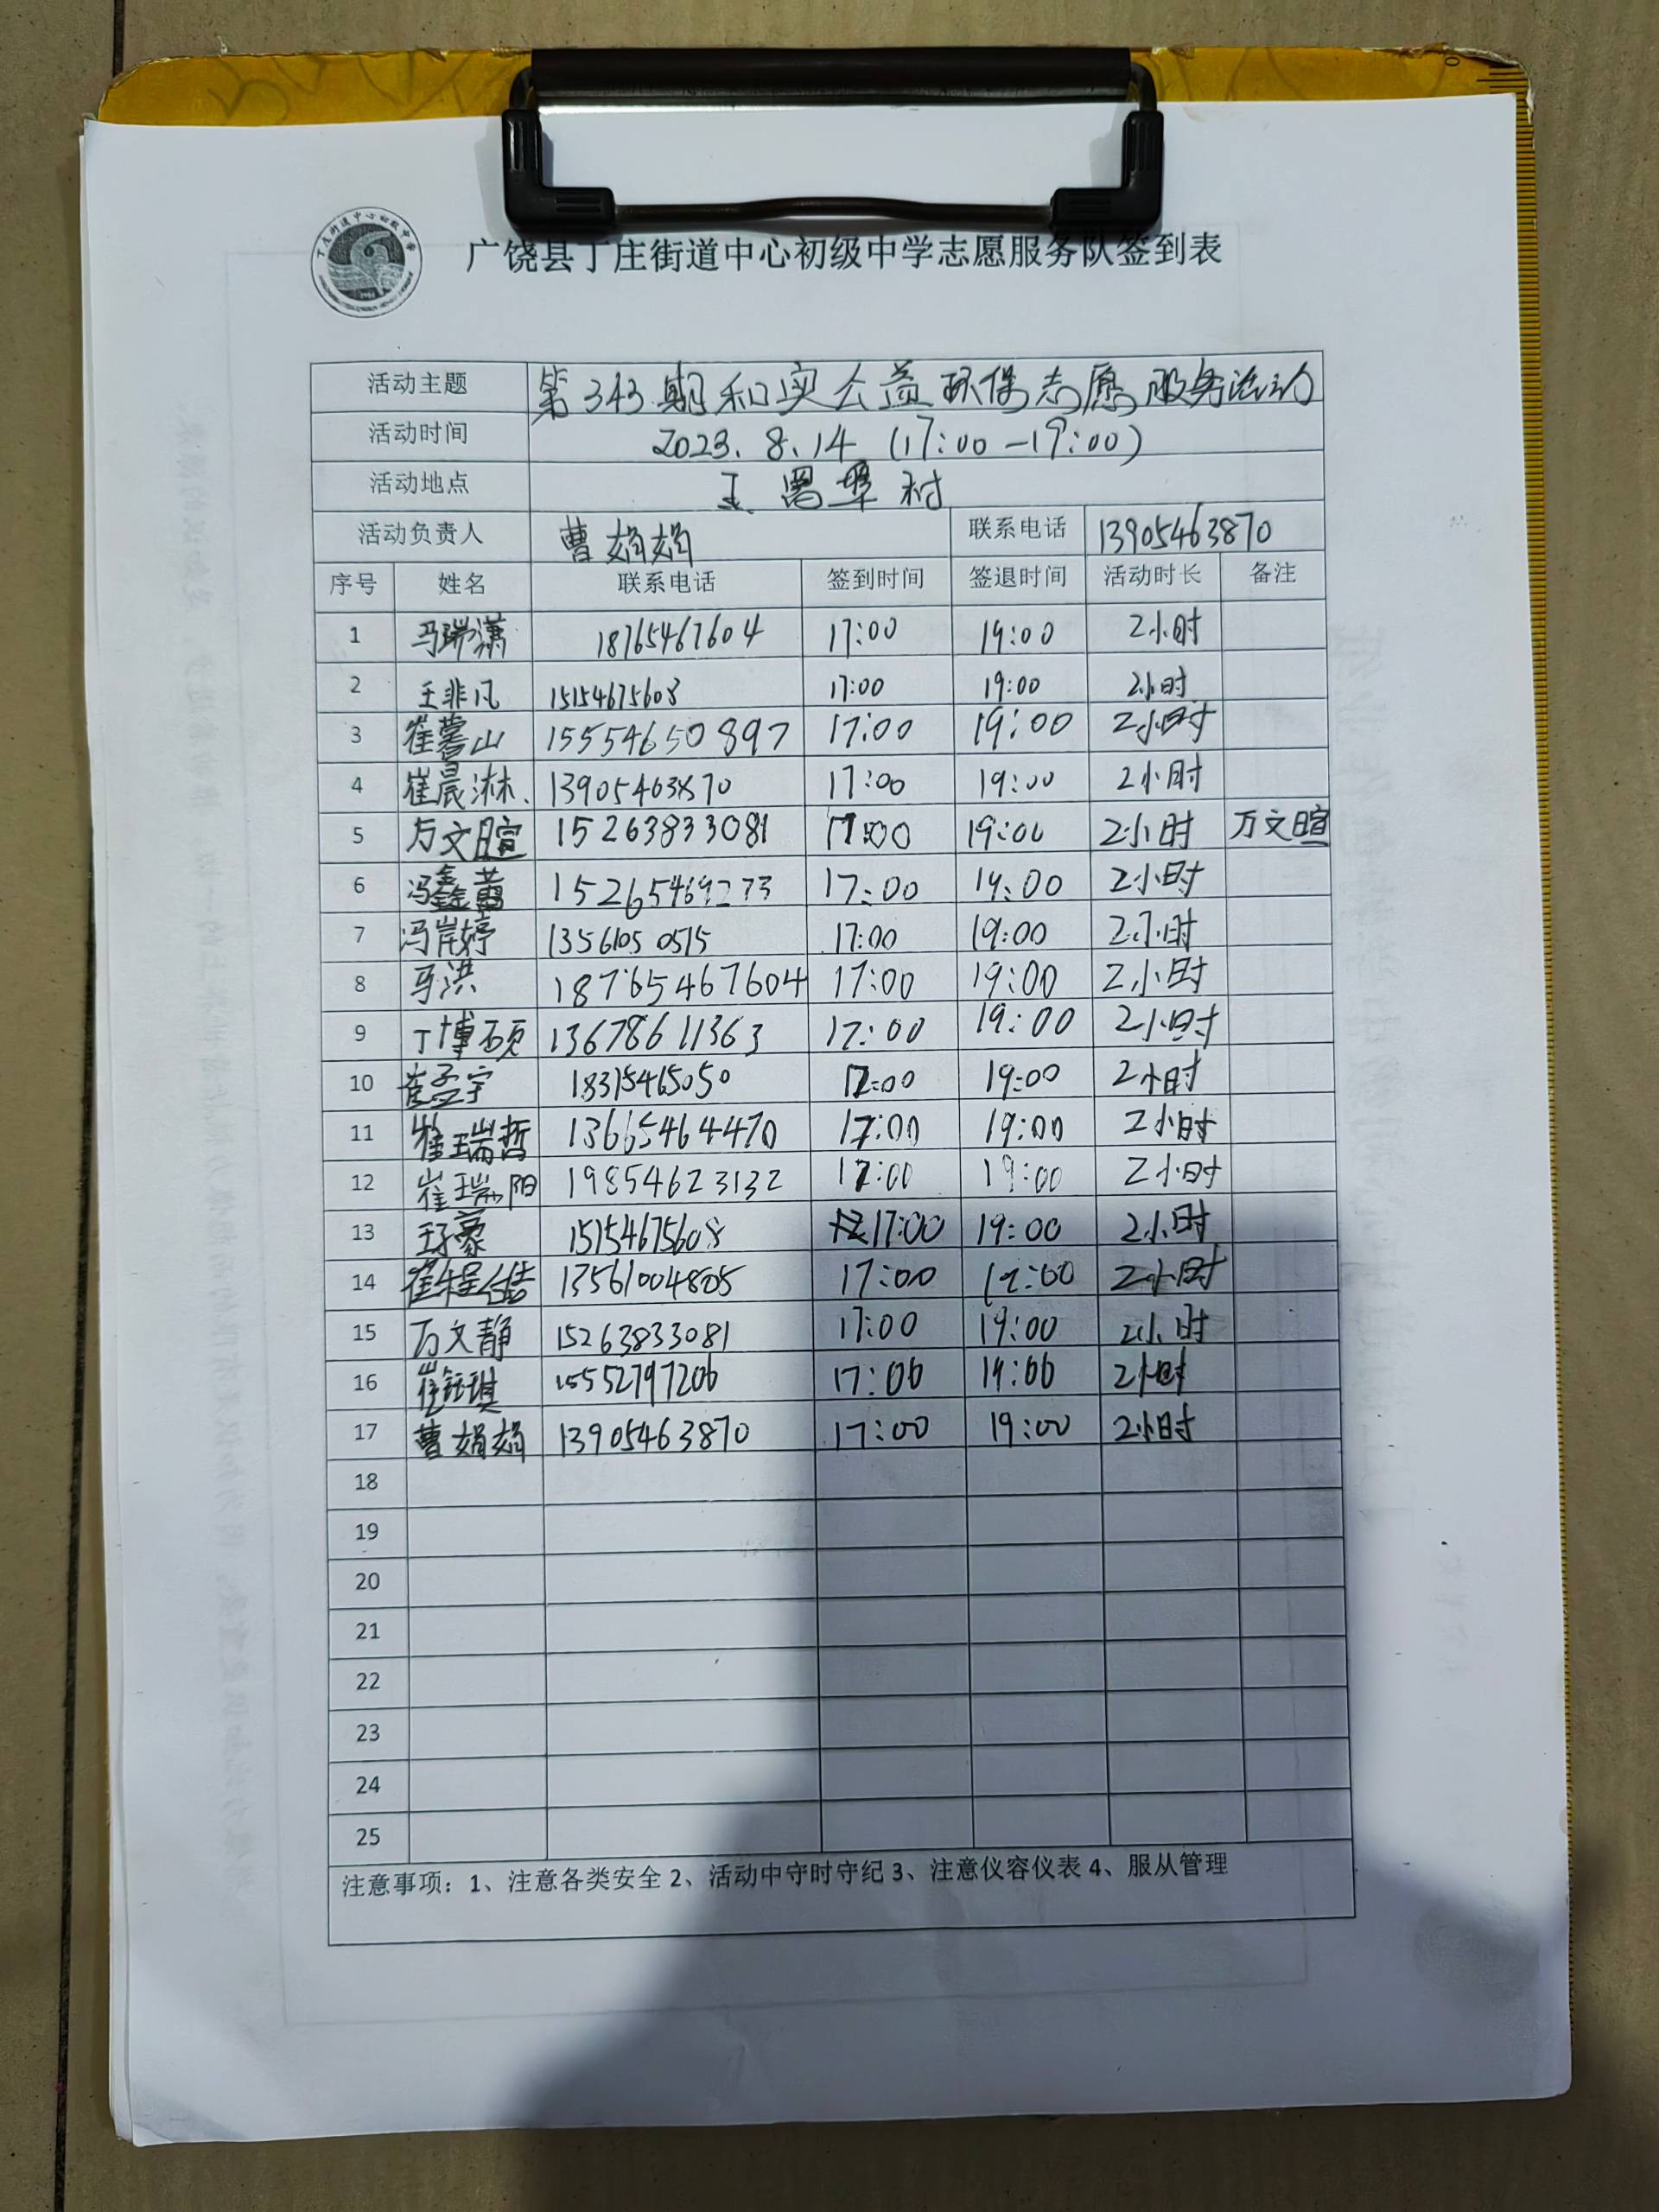 广饶县丁庄街道中心初级中学志愿服务队签到表
活动主题 第343期和实公益环保志愿服务活动
活动时间 2023.8.14 (17:00-19:00)
活动地点 王署埠村
活动负责人 曹娟娟 联系电话 13905463870
序号 姓名 联系电话 签到时间 签退时间 活动时长 备注
1 马瑞潇 18765467604 17:00 19:00 2小时
2 王非凡 15154675608 17:00 19:00 2小时
3 崔山 15554650897 17:00 19:00 2小时
4 崔晨淋 13905463870 17:00 19:00 2小时
5 万文暄 15263833081 17:00 19:00 2小时 万文暄
6 冯鑫 15265469273 17:00 19:00 2小时
7 冯岸婷 13561050515 17:00 19:00 2小时
8 马洪 18765467604 17:00 19:00 2小时
9 丁博硕 13678611363 17:00 19:00 2小时
10 崔孟宇 18315465050 17:00 19:00 2小时
11 崔瑞哲 13665464470 17:00 19:00 2小时
12 崔瑞阳 19854623132 17:00 19:00 2小时
13 王豪 15154675608 17:00 19:00 2小时
14 崔程 13561004805 17:00 19:00 2小时
15 万文静 15263833081 17:00 19:00 2小时
16 崔钰琪 15552797206 17:00 19:00 2小时
17 曹娟娟 13905463870 17:00 19:00 2小时
18
19
20
21
22
23
24
25
注意事项：1、注意各类安全 2、活动中守时守纪 3、注意仪容仪表 4、服从管理